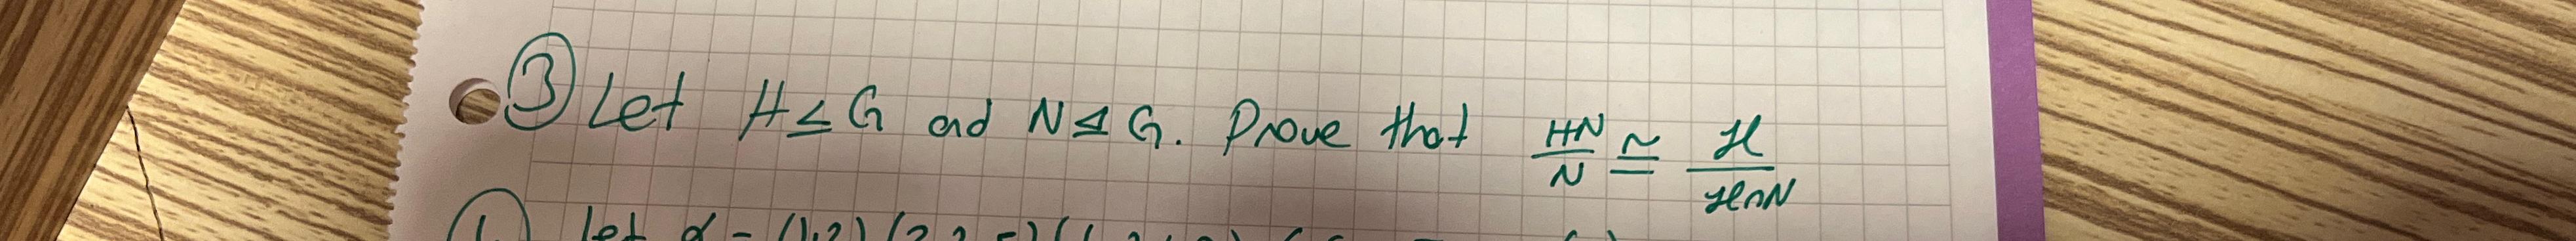 ③ Let H ≤ G and N ⊴ G. Prove that HN/N ≅ H/H∩N
let α = (1,2)